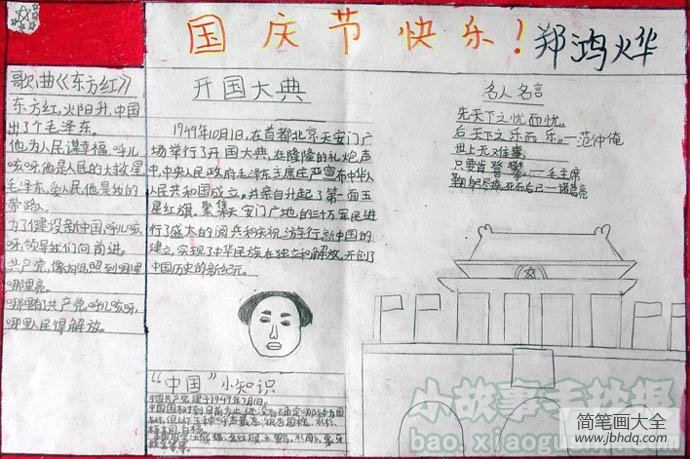 国庆节快乐!
郑鸿烨
歌曲《东方红》
东方红,火阳升,中国
出了个毛泽东。
他为人民谋幸福,呼儿
咳呀,他是人民的大救星
毛泽东,爱人民他是我的
带路人
为了建设新中国,呼儿咳
呀,领导我们向前进。
共产党,像太阳照到哪里
哪里亮。
哪里有共产党,呼儿咳呀,
哪里人民得解放。
开国大典
1949年10月1日,在首都北京天安门广
场举行了开国大典,在隆隆的礼炮声
中,中央人民政府毛泽东主席庄严宣布中华人
民共和国成立,并亲自升起了第一面五
星红旗,聚集天安门广地的三十万军民进
行了盛大的阅兵和庆祝游行,新中国的
建立,实现了中华民族在独立和解放,开创了
中国历史的新纪元。
名人名言
先天下之忧而忧,
后天下之乐而乐。—范仲俺
世上无难
只要肯登攀。—毛主席
鞠躬尽瘁,死而后已—诸葛亮
"中国"小知识
1949年7月1日。
小故事手抄报
bao.xiaogushi.com
简笔画大全
www.jbhdq.com